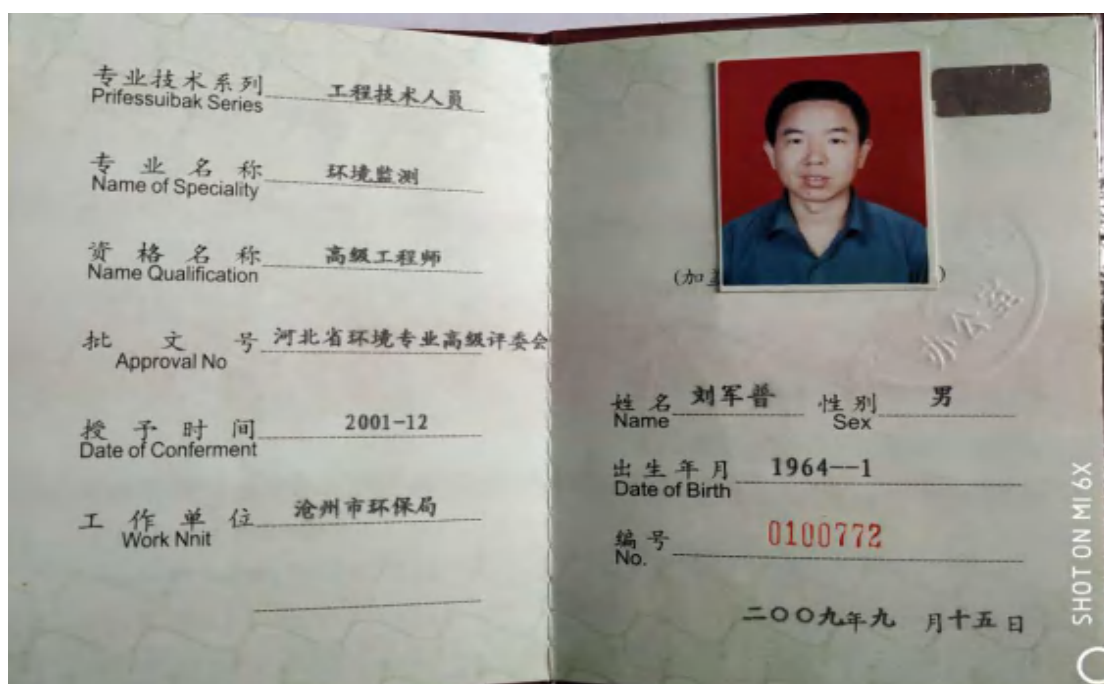 专业技术系列 工程技术人員
Prifessuibak Series
专业名称 环境监测
Name of Speciality
资格名称 高级工程师
Name Qualification
批文号 河北省环境专业高级评委会
Approval No
授予时间 2001-12
Date of Conferment
工作单位 沧州市环保局
Work Nnit
(加
)
办公室
姓名 刘军普 性别 男
Name Sex
出生年月 1964--1
Date of Birth
编号 0100772
No.
二〇〇九年九 月十五日
SHOT ON MI 6X